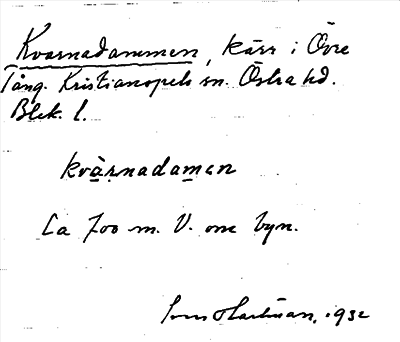 Kvarnadammen, kärr i Övre
Tång. Kristianopels sn. Östra hd.
Blek. l.
kvàrnadamen
Ca 700 m. V. om byn.
Sven Hartman, 1932